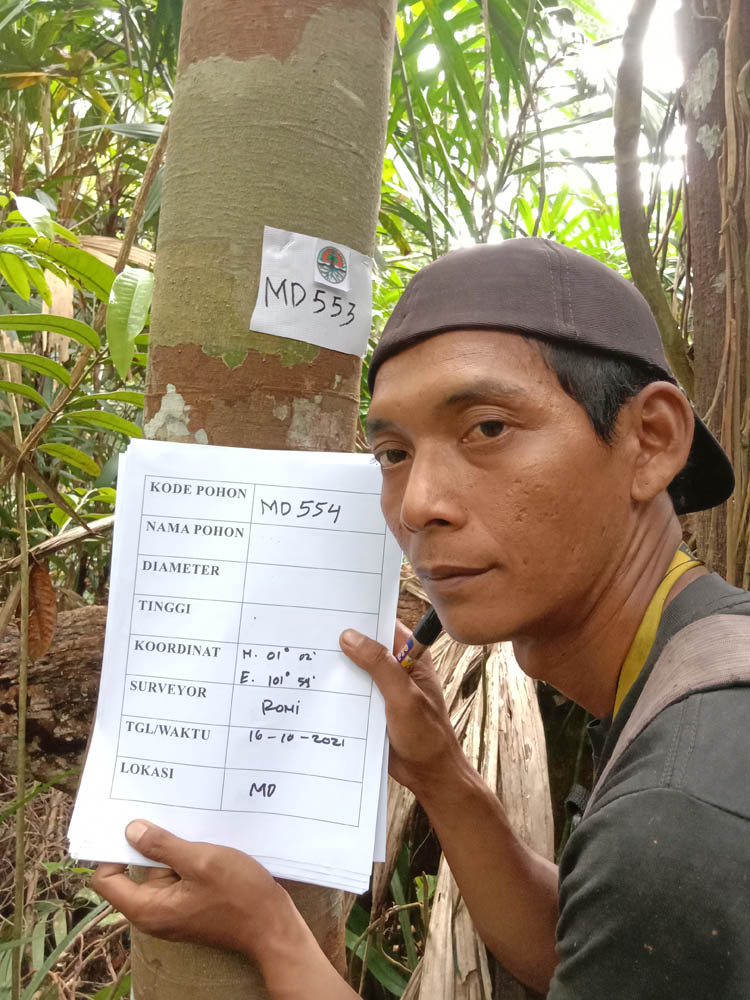 MD553
KODE POHON MD554
NAMA POHON
DIAMETER
TINGGI
KOORDINAT N. 01° 02'
E. 101° 59'
SURVEYOR ROMI
TGL/WAKTU 16-10-2021
LOKASI MD